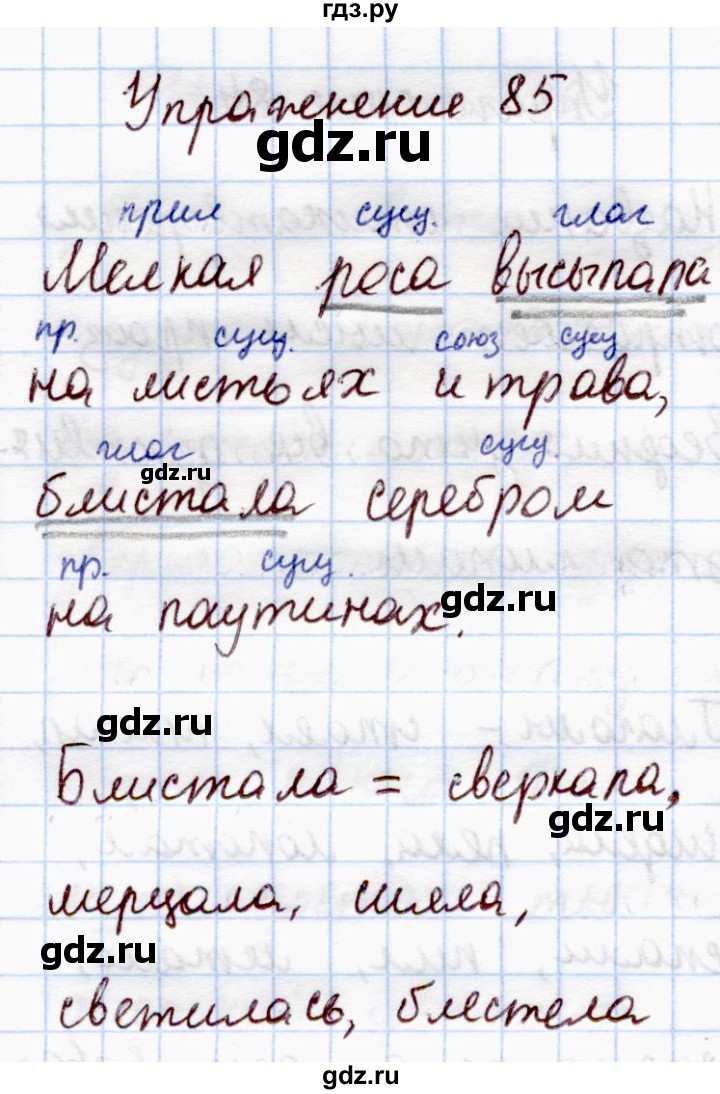 гдз.ру
Упражнение 85
gdz.ru
прил сущ. глаг
Мелкая роса высыпала
пр. сущ. союз сущ
на листьях и трава,
глаг сущ.
gdz.ru
блистала серебром
пр. сущ.
gdz.ru
на паутинах.
gdz.ru
Блистала = сверкала,
gdz.ru
мерцала, сияла,
gdz.ru
светилась, блестела
gdz.ru